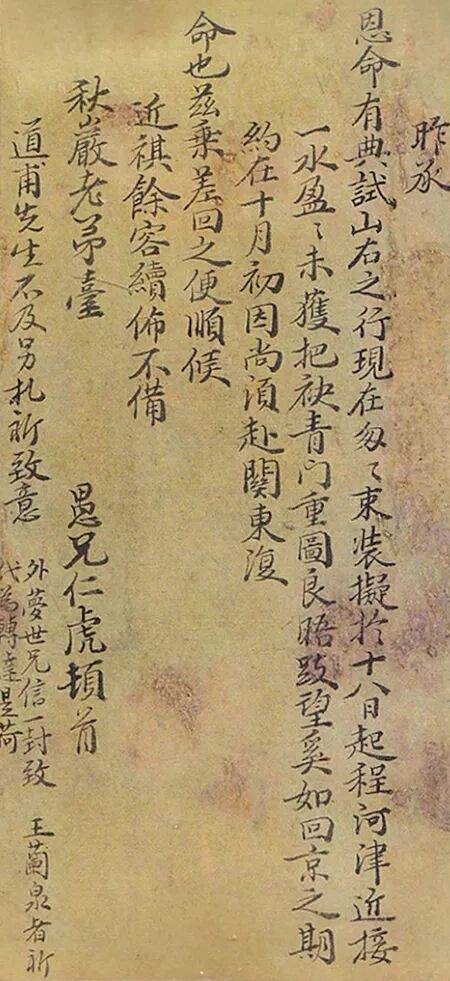 昨承
恩命有典試山右之行現在匆々束裝擬於十八日起程河津近接
一水盈々未獲把袂青門重圖良晤跂望奚如回京之期
約在十月初因尚須赴關東復
命也茲乘差回之便順候
近祺餘容續佈不備
秋巖老弟臺
愚兄仁虎頓首
道甫先生不及另札祈致意
外夢世兄信一封致 王蘭泉者祈
代為轉達是荷